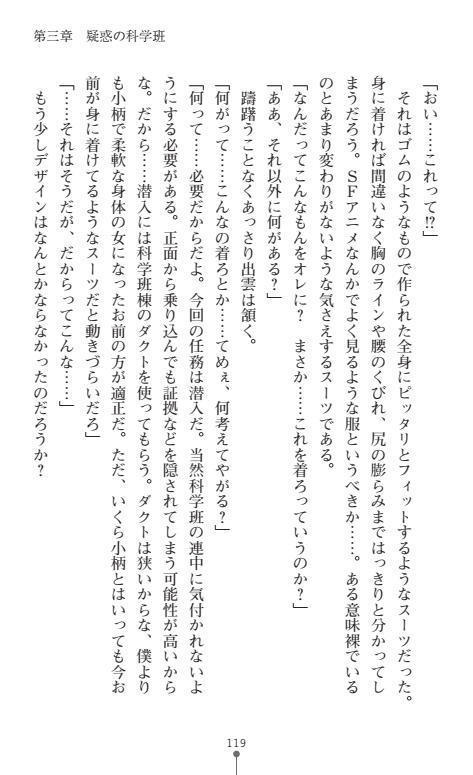 第三章　疑惑の科学班
「おい……これって!?」
　それはゴムのようなもので作られた全身にピッタリとフィットするようなスーツだった。
身に着ければ間違いなく胸のラインや腰のくびれ、尻の膨らみまではっきりと分かってし
まうだろう。ＳＦアニメなんかでよく見るような服というべきか……。ある意味裸でいる
のとあまり変わりがないような気さえするスーツである。
「なんだってこんなもんをオレに？　まさか……これを着ろっていうのか？」
「ああ、それ以外に何がある？」
　躊躇うことなくあっさり出雲は頷く。
「何がって……こんなの着ろとか……てめぇ、何考えてやがる？」
「何って……必要だからだよ。今回の任務は潜入だ。当然科学班の連中に気付かれないよ
うにする必要がある。正面から乗り込んでも証拠などを隠されてしまう可能性が高いから
な。だから……潜入には科学班棟のダクトを使ってもらう。ダクトは狭いからな、僕より
も小柄で柔軟な身体の女になったお前の方が適正だ。ただ、いくら小柄とはいっても今お
前が身に着けてるようなスーツだと動きづらいだろ」
「……それはそうだが、だからってこんな……」
　もう少しデザインはなんとかならなかったのだろうか？
119